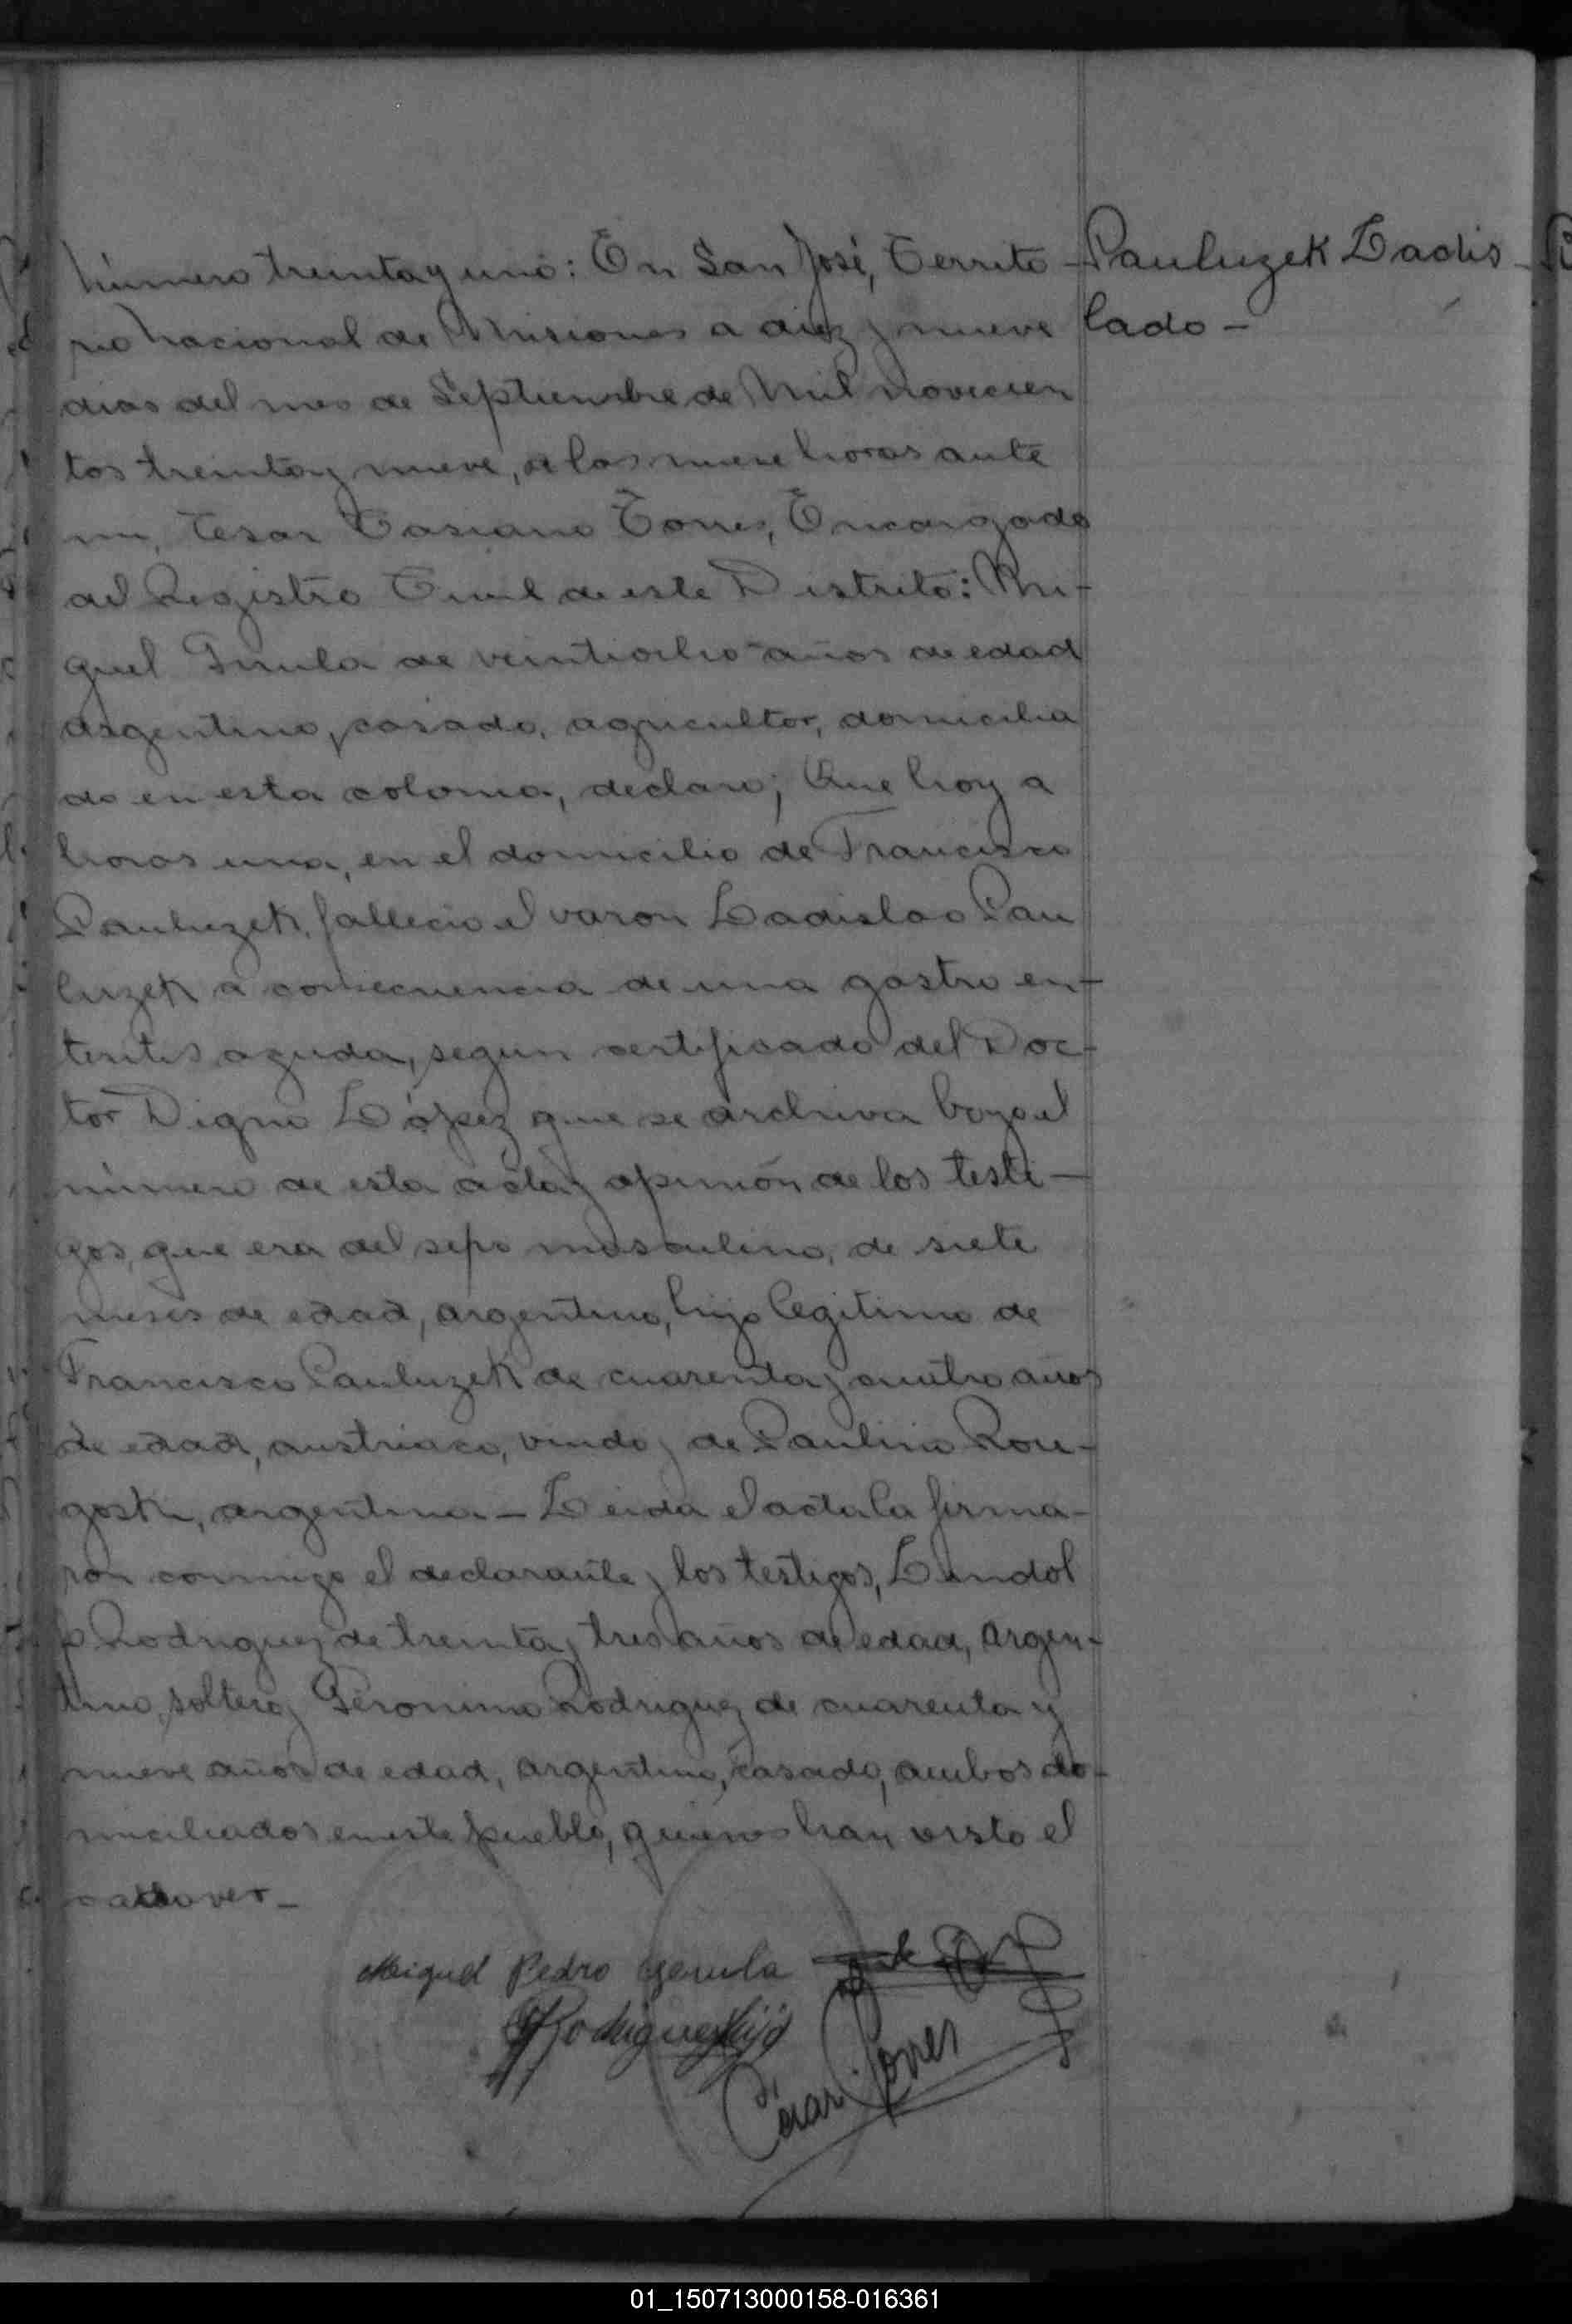 Número treinta y uno: En San José, Territo-
rio Nacional de Misiones a diez y nueve
dias del mes de Septiembre de Mil novecien
tos treinta y nueve, a las nueve horas ante
mi, Cesar Casiano Torres, Encargado
del Registro Civil de este Distrito: Mi-
guel de veintiocho años de edad
argentino, casado, agricultor, domicilia
do en esta colonia, declaro; Que hoy a
horas una, en el domicilio de Francisco
Pauluzek, fallecio el varon Ladislao Pau
luzek a consecuencia de una gastro en-
teritis aguda, segun certificado del Doc-
tor Digno López que se archiva bajo el
número de esta acta y opinión de los testi-
gos, que era del sexo masculino, de siete
meses de edad, argentino, hijo legitimo de
Francisco Pauluzek de cuarenta y cuatro años
de edad, austriaco, viudo y de Paulina Rou-
gosk, argentina - Leida el acta la firma-
ron conmigo el declarante y los testigos, Lindol
fo Rodriguez de treinta y tres años de edad, argen-
tino, soltero y Geronimo Rodriguez de cuarenta y
nueve años de edad, argentino, casado, ambos do-
miciliados en este pueblo, quienes han visto el
cadaver -
Pauluzek Ladis-
lado -
Miguel Pedro Genula
Rodriguez hijo
César Torres
01_150713000158-016361